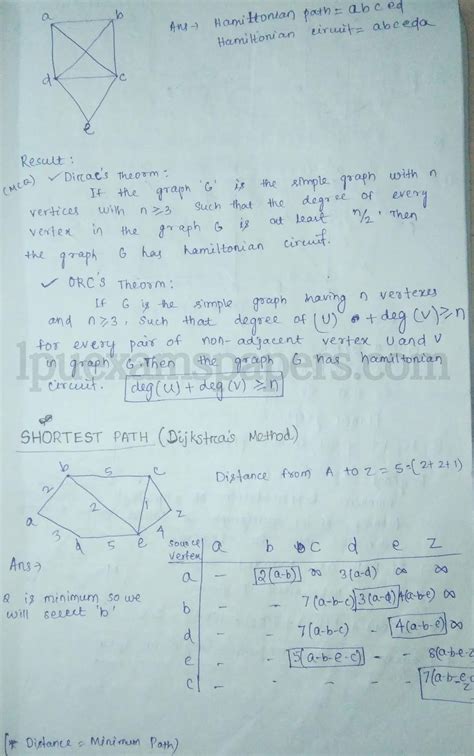 a b
d c
e
Ans → Hamiltonian path = abced
Hamiltonian circuit = abceda
Result :
(MCQ) ✓ Dircac's Theorm :
If the graph 'G' is the simple graph with n
vertices with n≥3 such that the degree of every
vertex in the graph G is at least n/2, Then
the graph G has hamiltonian circuit.
✓ ORC'S Theorm :
If G is the simple graph having n vertexes
and n≥3, Such that degree of (U) + deg (V) ≥ n
for every pair of non-adjacent vertex U and V
in graph G. Then the graph G has hamiltonian
circuit. deg(U) + deg(V) ≥ n
lpuexamspapers.com
SHORTEST PATH (Dijkstra's Method)
b 5 c
2 2 1 z
a 3 d 5 e 4
Distance from A to Z = 5 = (2+2+1)
Ans →
2 is minimum so we
will select 'b'
source vertex a b c d e z
a - 2(a-b) ∞ 3(a-d) ∞ ∞
b - - 7(a-b-c) 3(a-d) 4(a-b-e) ∞
d - - 7(a-b-c) - 4(a-b-e) ∞
e - - 5(a-b-e-c) - - 8(a-b-e-z
c - - - - - 7(a-b-e-
(* Distance = Minimum Path)